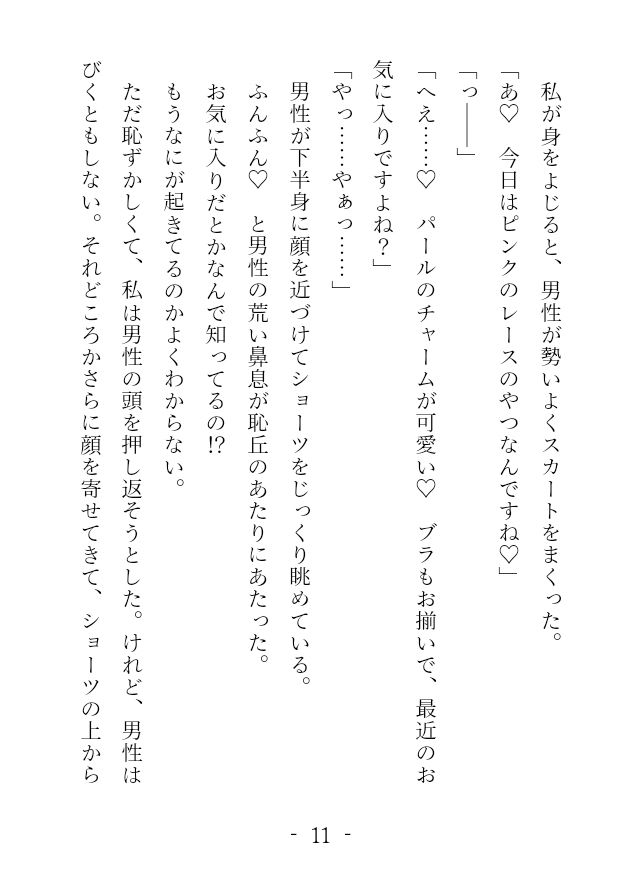 私が身をよじると、男性が勢いよくスカートをまくった。
「あ♡　今日はピンクのレースのやつなんですね♡」
「っ――」
「へえ……♡　パールのチャームが可愛い♡　ブラもお揃いで、最近のお
気に入りですよね？」
「やっ……やぁっ……」
　男性が下半身に顔を近づけてショーツをじっくり眺めている。
　ふんふん♡　と男性の荒い鼻息が恥丘のあたりにあたった。
　お気に入りだとかなんで知ってるの!?
　もうなにが起きてるのかよくわからない。
　ただ恥ずかしくて、私は男性の頭を押し返そうとした。けれど、男性は
びくともしない。それどころかさらに顔を寄せてきて、ショーツの上から
- 11 -